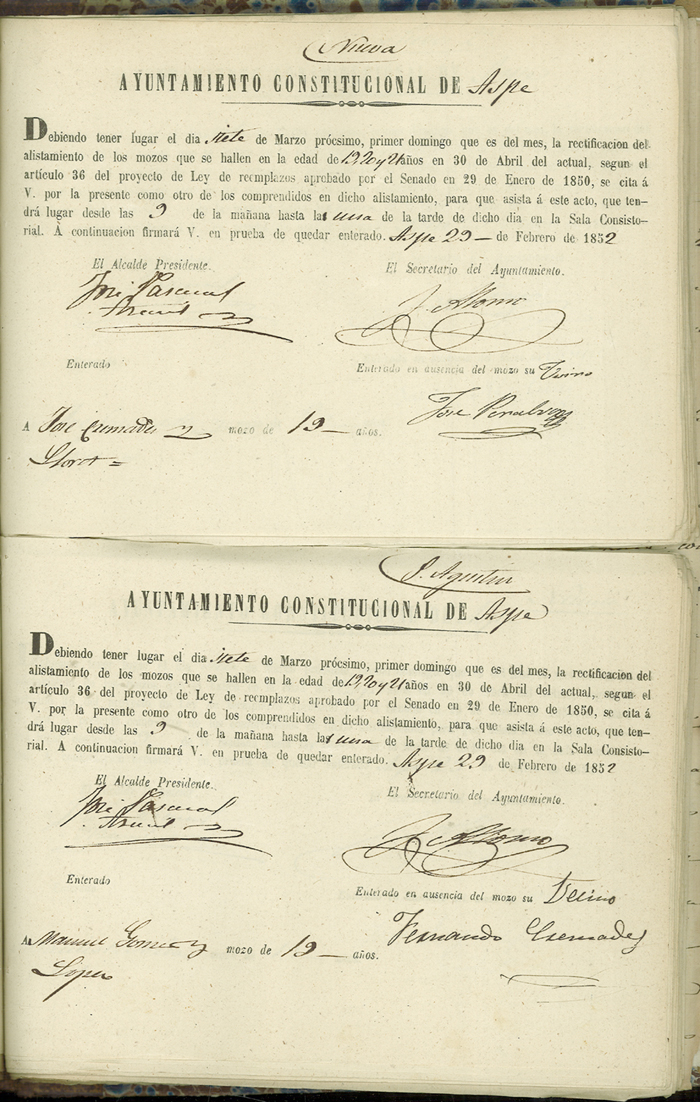 Nueva
AYUNTAMIENTO CONSTITUCIONAL DE Aspe
Debiendo tener lugar el dia siete de Marzo prócsimo, primer domingo que es del mes, la rectificacion del
alistamiento de los mozos que se hallen en la edad de 19, 20 y 21 años en 30 de Abril del actual, segun el
artículo 36 del proyecto de Ley de reemplazos aprobado por el Senado en 29 de Enero de 1850, se cita á
V. por la presente como otro de los comprendidos en dicho alistamiento, para que asista á este acto, que ten-
drá lugar desde las 9 de la mañana hasta la una de la tarde de dicho dia en la Sala Consisto-
rial. A continuacion firmará V. en prueba de quedar enterado. Aspe 29 de Febrero de 1852
El Alcalde Presidente. El Secretario del Ayuntamiento.
José Pascual J. Alonso
Enterado Enterado en ausencia del mozo su
José
A José mozo de 19 años.
Lloret =
S. Agustin
AYUNTAMIENTO CONSTITUCIONAL DE Aspe
Debiendo tener lugar el dia siete de Marzo prócsimo, primer domingo que es del mes, la rectificacion del
alistamiento de los mozos que se hallen en la edad de 19, 20 y 21 años en 30 de Abril del actual, segun el
artículo 36 del proyecto de Ley de reemplazos aprobado por el Senado en 29 de Enero de 1850, se cita á
V. por la presente como otro de los comprendidos en dicho alistamiento, para que asista á este acto, que ten-
drá lugar desde las 9 de la mañana hasta la una de la tarde de dicho dia en la Sala Consisto-
rial. A continuacion firmará V. en prueba de quedar enterado. Aspe 29 de Febrero de 1852
El Alcalde Presidente. El Secretario del Ayuntamiento.
José Pascual J. Alonso
Enterado Enterado en ausencia del mozo su Vecino
Fernando Cremades
A Manuel Gomez y mozo de 19 años.
Lopez